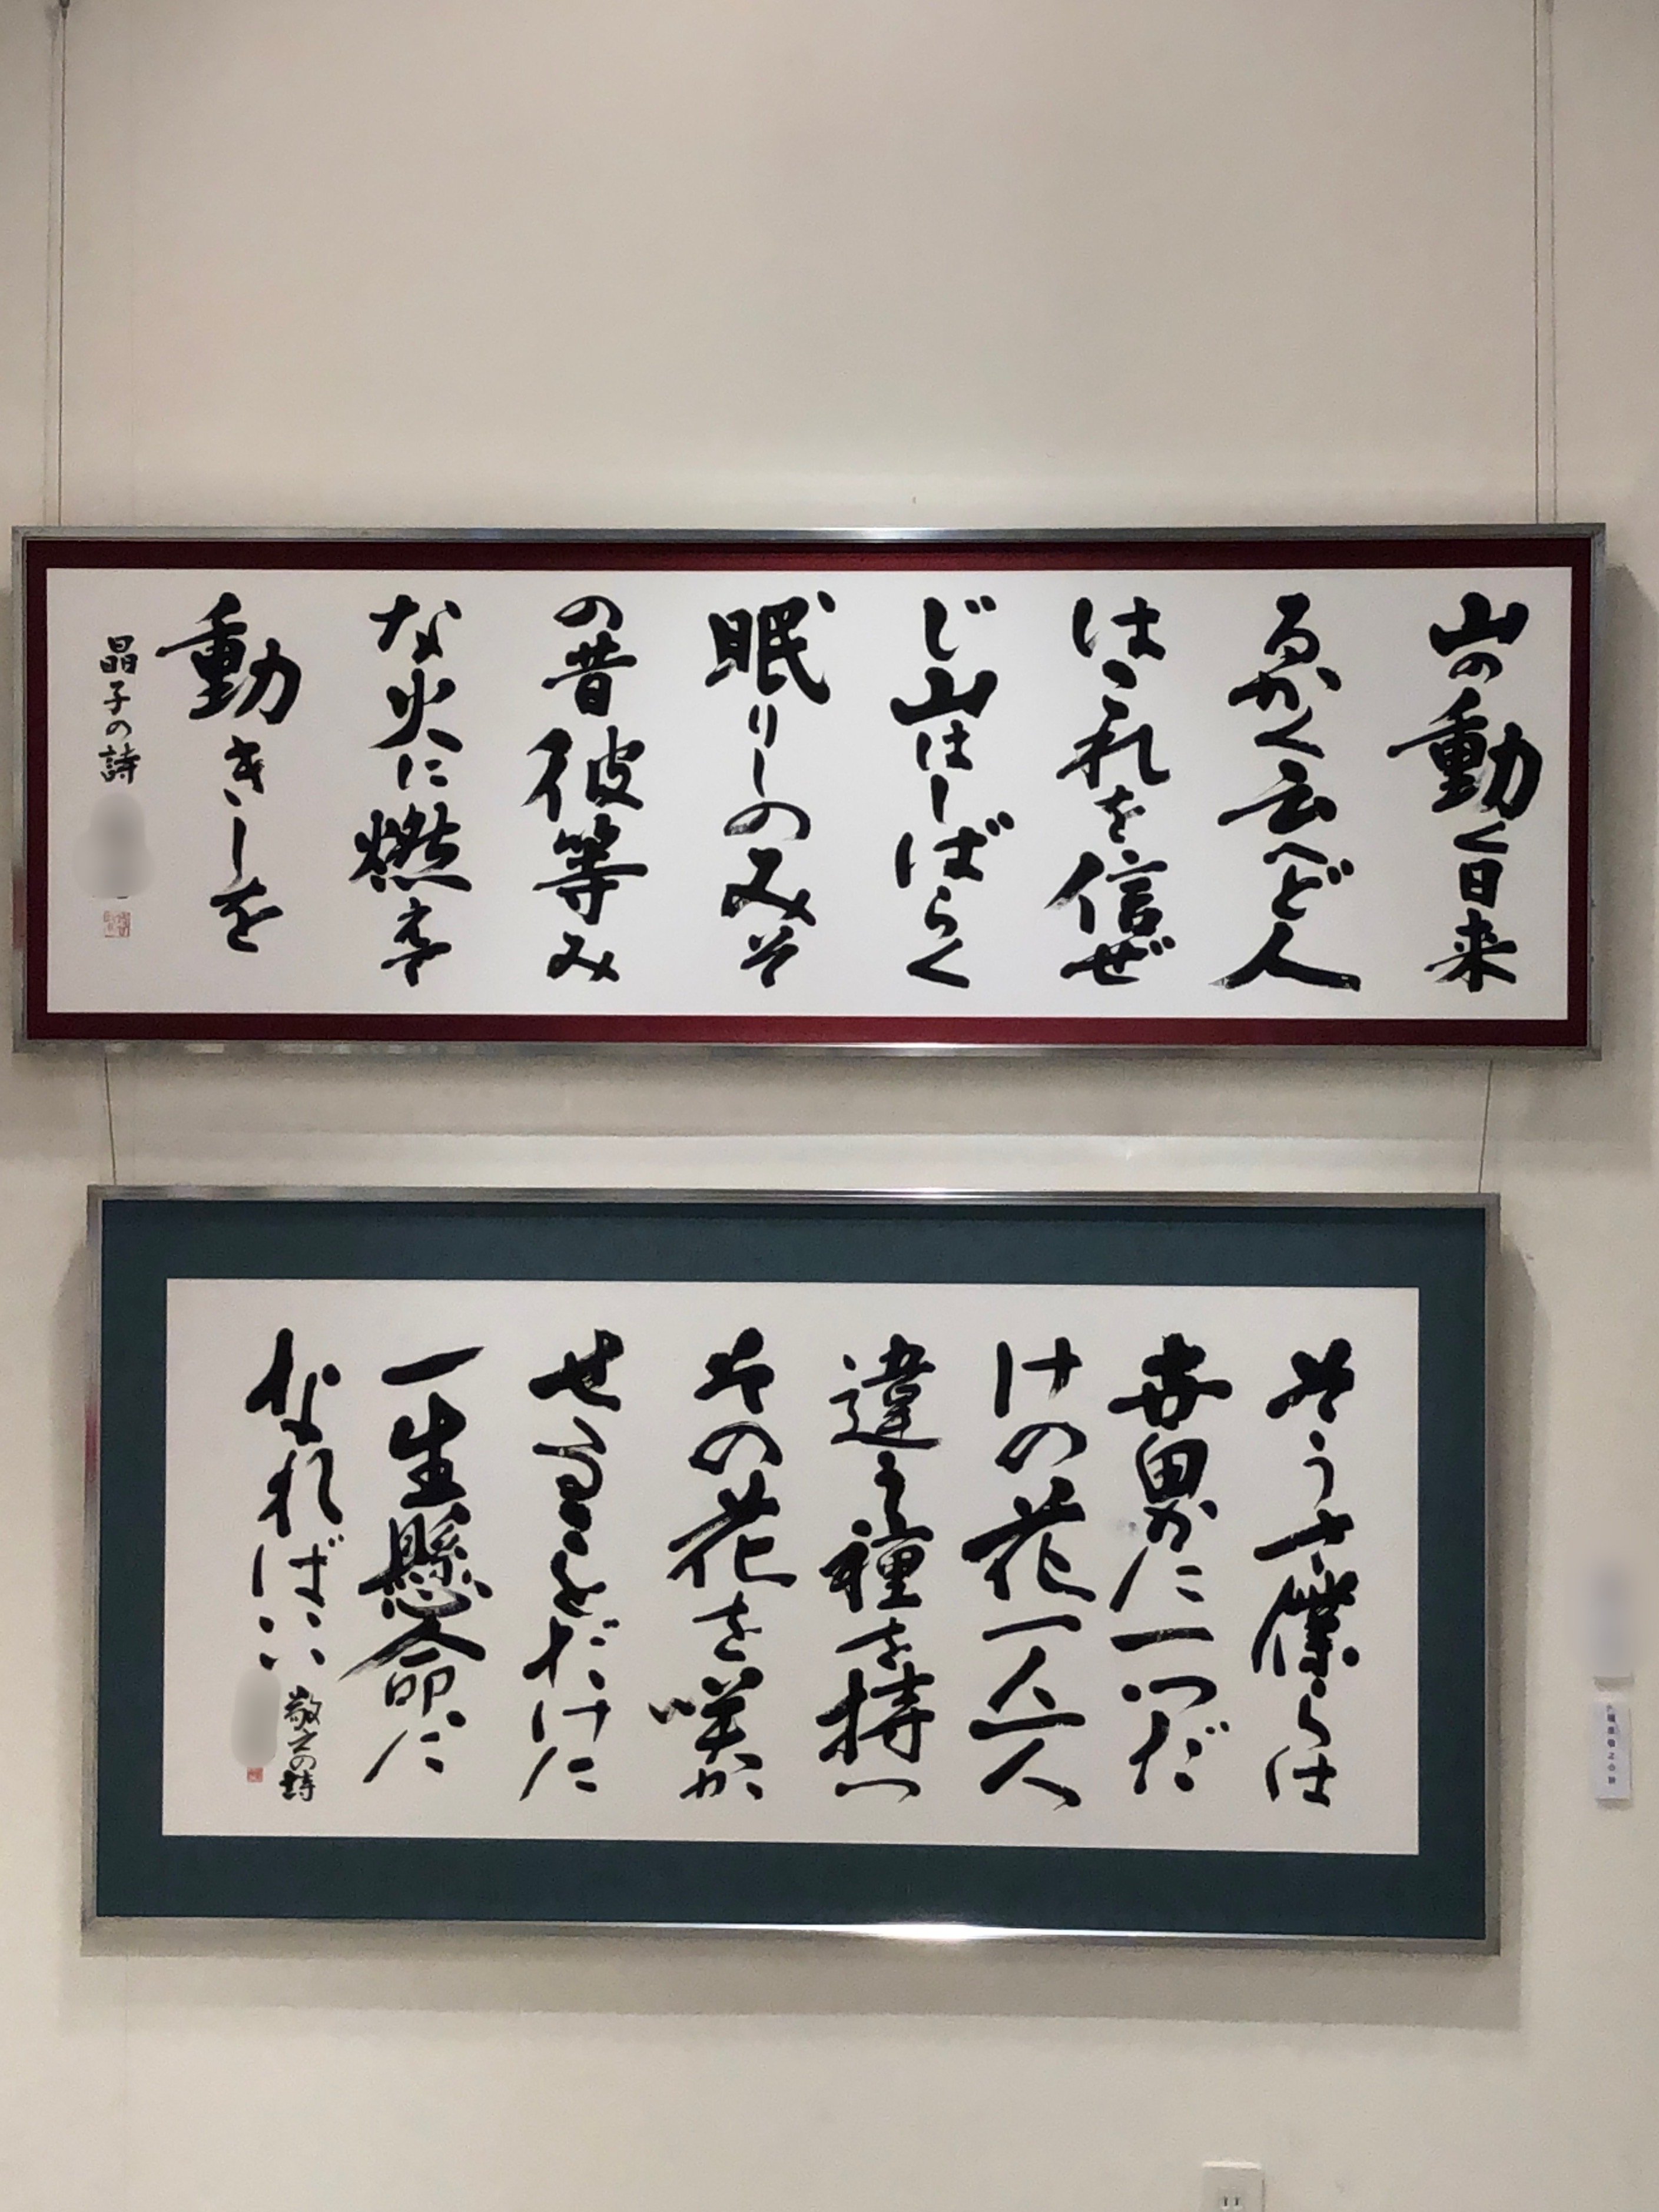 山の動く日来
るかく云へど人
はこれを信ぜ
じ山はしばらく
眠りしのみそ
の昔彼等み
な火に燃えて
動きしを
晶子の詩
そうさ僕らは
世界に一つだ
けの花一人一人
違う種を持つ
その花を咲か
せることだけに
一生懸命に
なればいい
敬之の詩